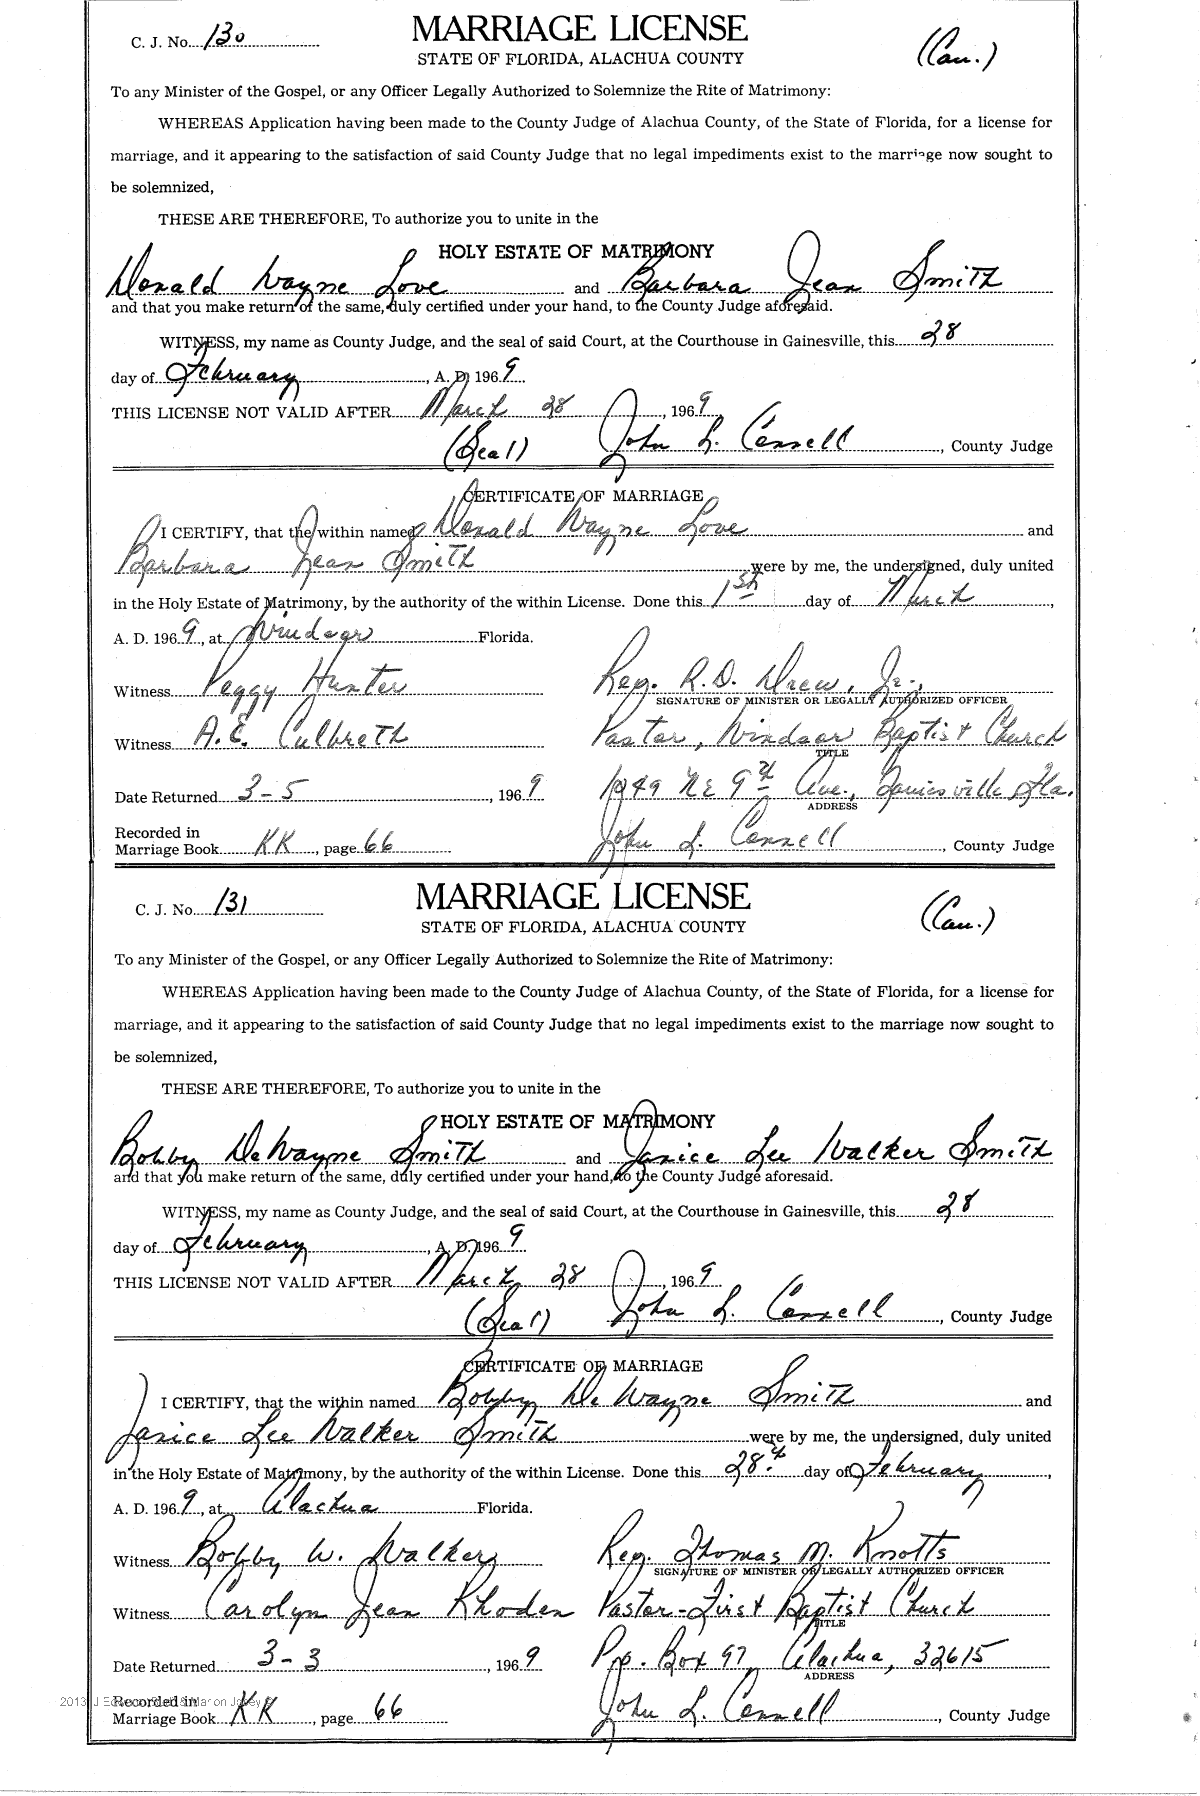 C. J. No. 130
MARRIAGE LICENSE
(Cau.)
STATE OF FLORIDA, ALACHUA COUNTY
To any Minister of the Gospel, or any Officer Legally Authorized to Solemnize the Rite of Matrimony:
WHEREAS Application having been made to the County Judge of Alachua County, of the State of Florida, for a license for
marriage, and it appearing to the satisfaction of said County Judge that no legal impediments exist to the marriage now sought to
be solemnized,
THESE ARE THEREFORE, To authorize you to unite in the
HOLY ESTATE OF MATRIMONY
Donald Wayne Love and Barbara Jean Smith
and that you make return of the same, duly certified under your hand, to the County Judge aforesaid.
WITNESS, my name as County Judge, and the seal of said Court, at the Courthouse in Gainesville, this 28
day of February, A. D. 1969
THIS LICENSE NOT VALID AFTER March 28, 1969
(Seal) John L. Connell, County Judge
CERTIFICATE OF MARRIAGE
I CERTIFY, that the within named Donald Wayne Love and
Barbara Jean Smith were by me, the undersigned, duly united
in the Holy Estate of Matrimony, by the authority of the within License. Done this 1st day of March,
A. D. 1969, at Windsor Florida.
Witness Peggy Hunter Rev. R. D. Drew, Jr.,
SIGNATURE OF MINISTER OR LEGALLY AUTHORIZED OFFICER
Witness A. E. Culbreth Pastor, Windsor Baptist Church
TITLE
Date Returned 3-5, 1969 1949 NE 9th Ave., Gainesville Fla.
ADDRESS
Recorded in
Marriage Book KK, page 66 John L. Connell, County Judge
C. J. No. 131
MARRIAGE LICENSE
(Cau.)
STATE OF FLORIDA, ALACHUA COUNTY
To any Minister of the Gospel, or any Officer Legally Authorized to Solemnize the Rite of Matrimony:
WHEREAS Application having been made to the County Judge of Alachua County, of the State of Florida, for a license for
marriage, and it appearing to the satisfaction of said County Judge that no legal impediments exist to the marriage now sought to
be solemnized,
THESE ARE THEREFORE, To authorize you to unite in the
HOLY ESTATE OF MATRIMONY
Bobby DeWayne Smith and Janice Lee Walker Smith
and that you make return of the same, duly certified under your hand, to the County Judge aforesaid.
WITNESS, my name as County Judge, and the seal of said Court, at the Courthouse in Gainesville, this 28
day of February, A. D. 1969
THIS LICENSE NOT VALID AFTER March 28, 1969
(Seal) John L. Connell, County Judge
CERTIFICATE OF MARRIAGE
I CERTIFY, that the within named Bobby DeWayne Smith and
Janice Lee Walker Smith were by me, the undersigned, duly united
in the Holy Estate of Matrimony, by the authority of the within License. Done this 28th day of February,
A. D. 1969, at Alachua Florida.
Witness Bobby W. Walker Rev. Thomas M. Knotts
SIGNATURE OF MINISTER OR LEGALLY AUTHORIZED OFFICER
Witness Carolyn Jean Rhoden Pastor-First Baptist Church
TITLE
Date Returned 3-3, 1969 P.o. Box 97, Alachua, 32615
ADDRESS
2013 J
Recorded in
Marriage Book KK, page 66 John L. Connell, County Judge